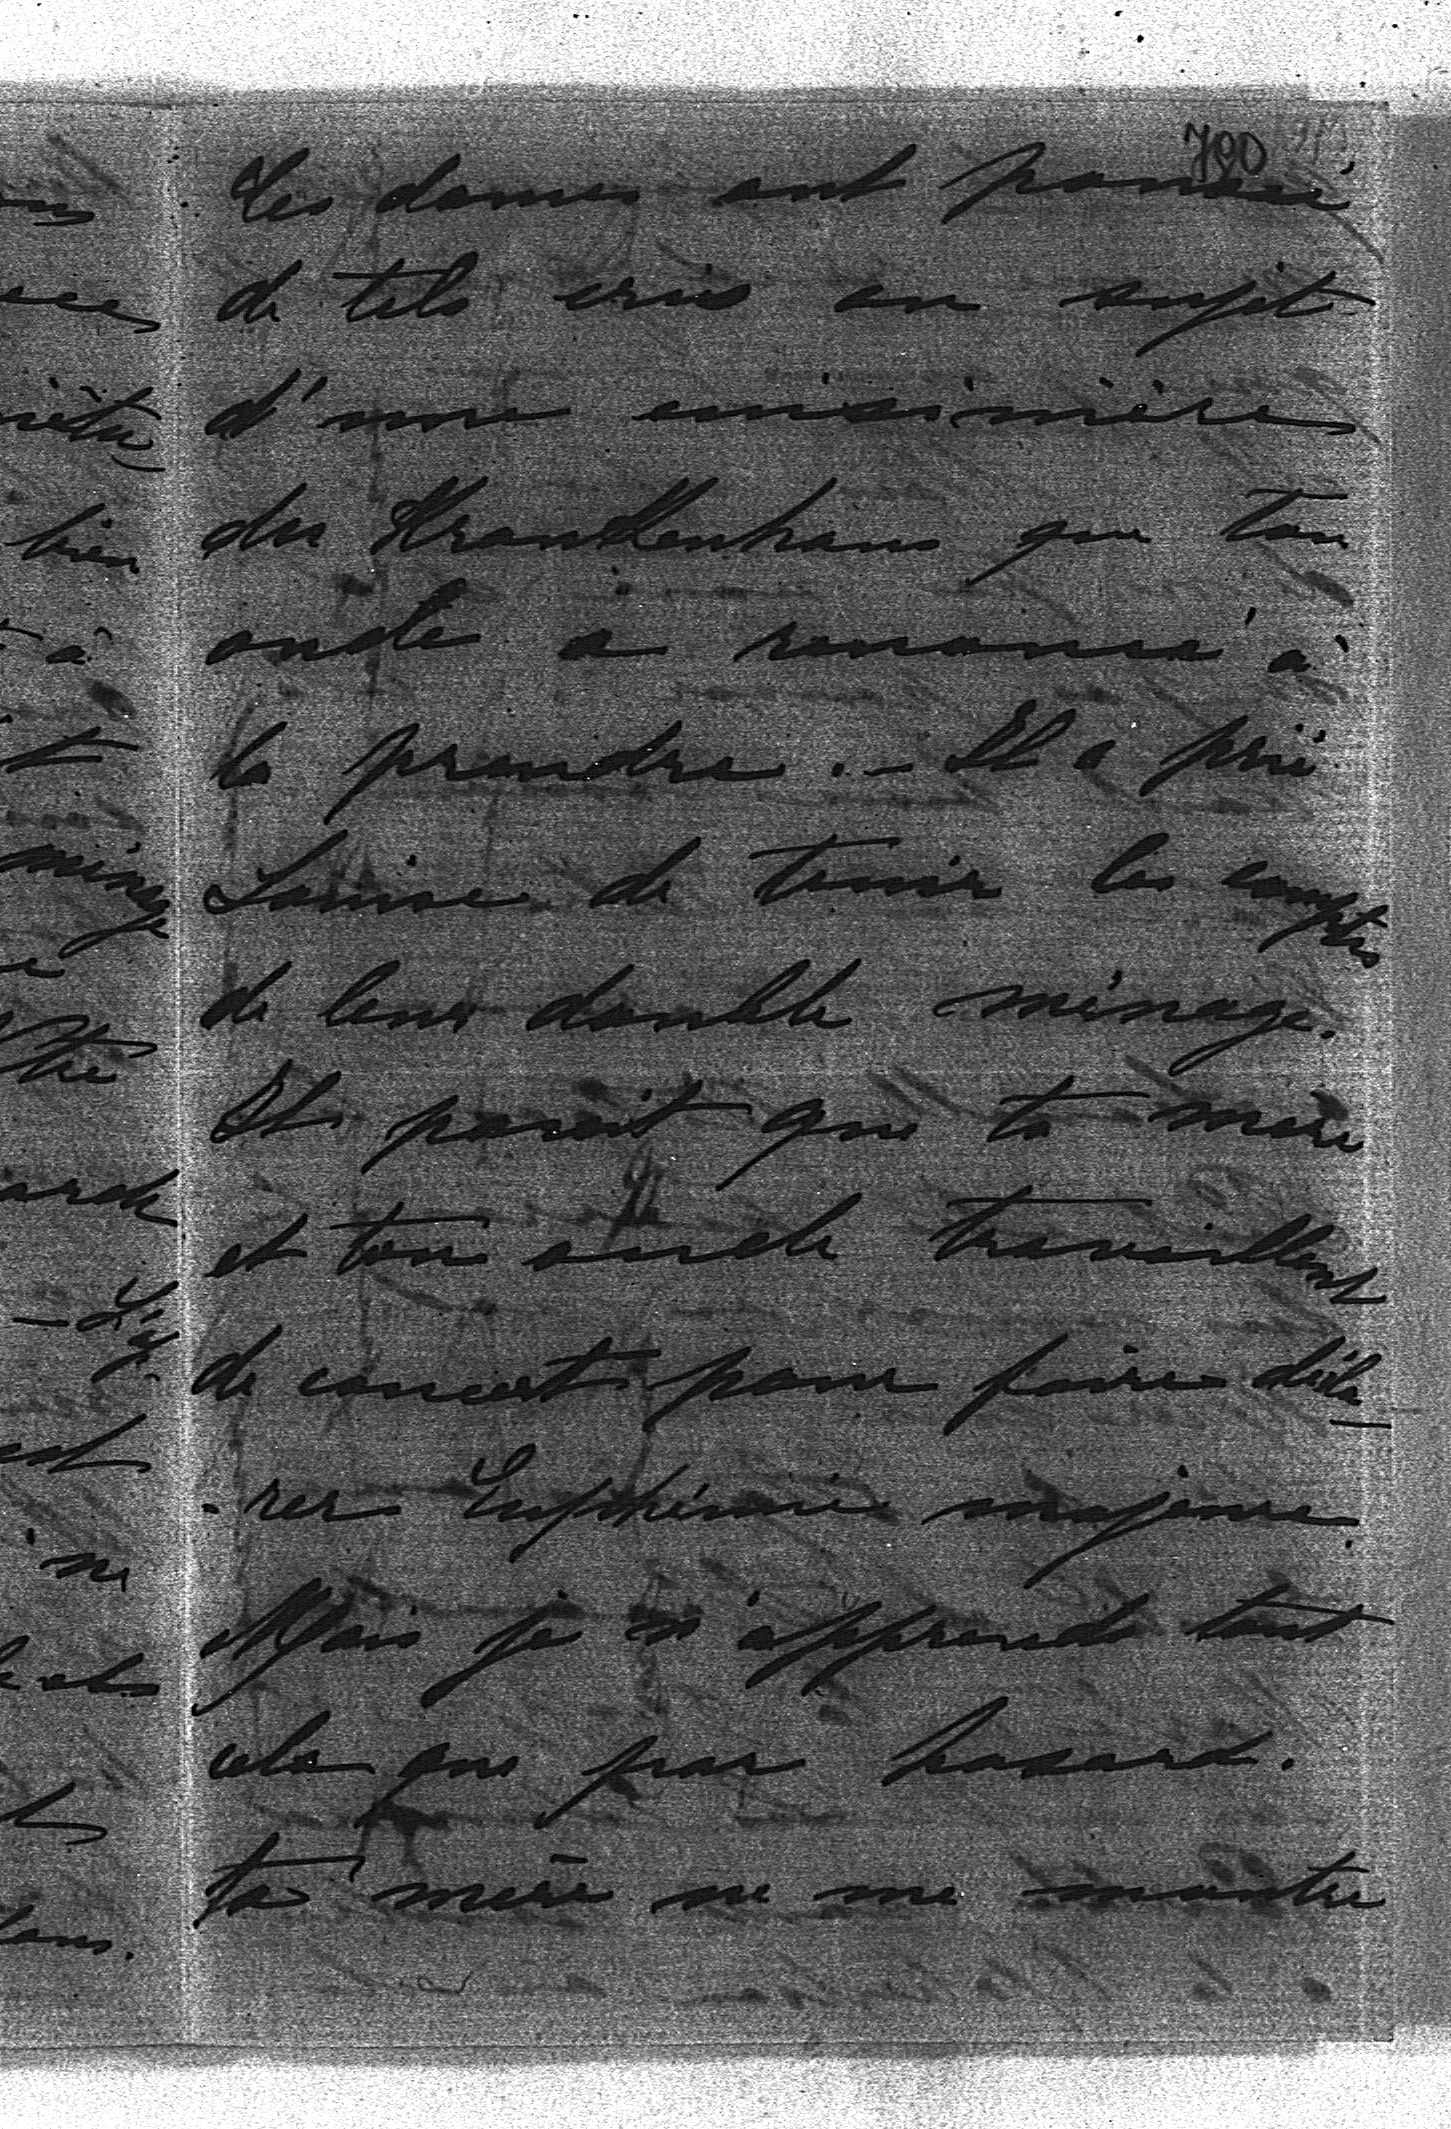 790
Les dames ont poussé
de tels cris au sujet
d'une cuisinière
du Krankenhaus que ton
oncle a renoncé à
la prendre. — Il a prié
Louise de tenir les comptes
de leur double ménage.
Il parait que ta mère
et ton oncle travaillent
de concert pour faire décla-
-rer Euphémie majeure.
Mais je n'apprends tout
cela que par hasard.
ta mère ne me montre